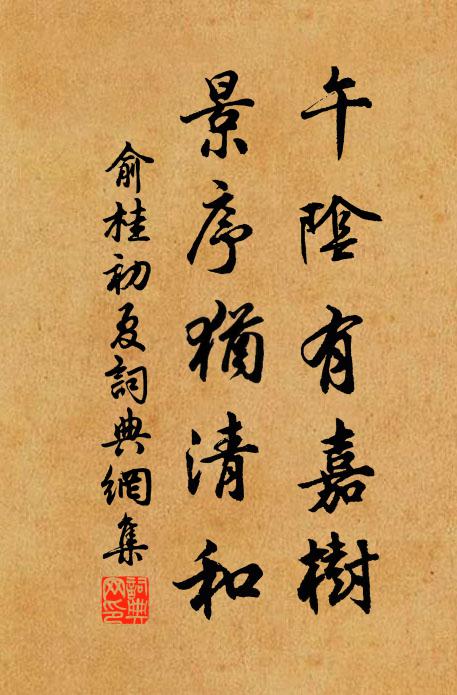 午陰有嘉樹
景序猶清和
俞桂初夏詞典網集
詞典
网印